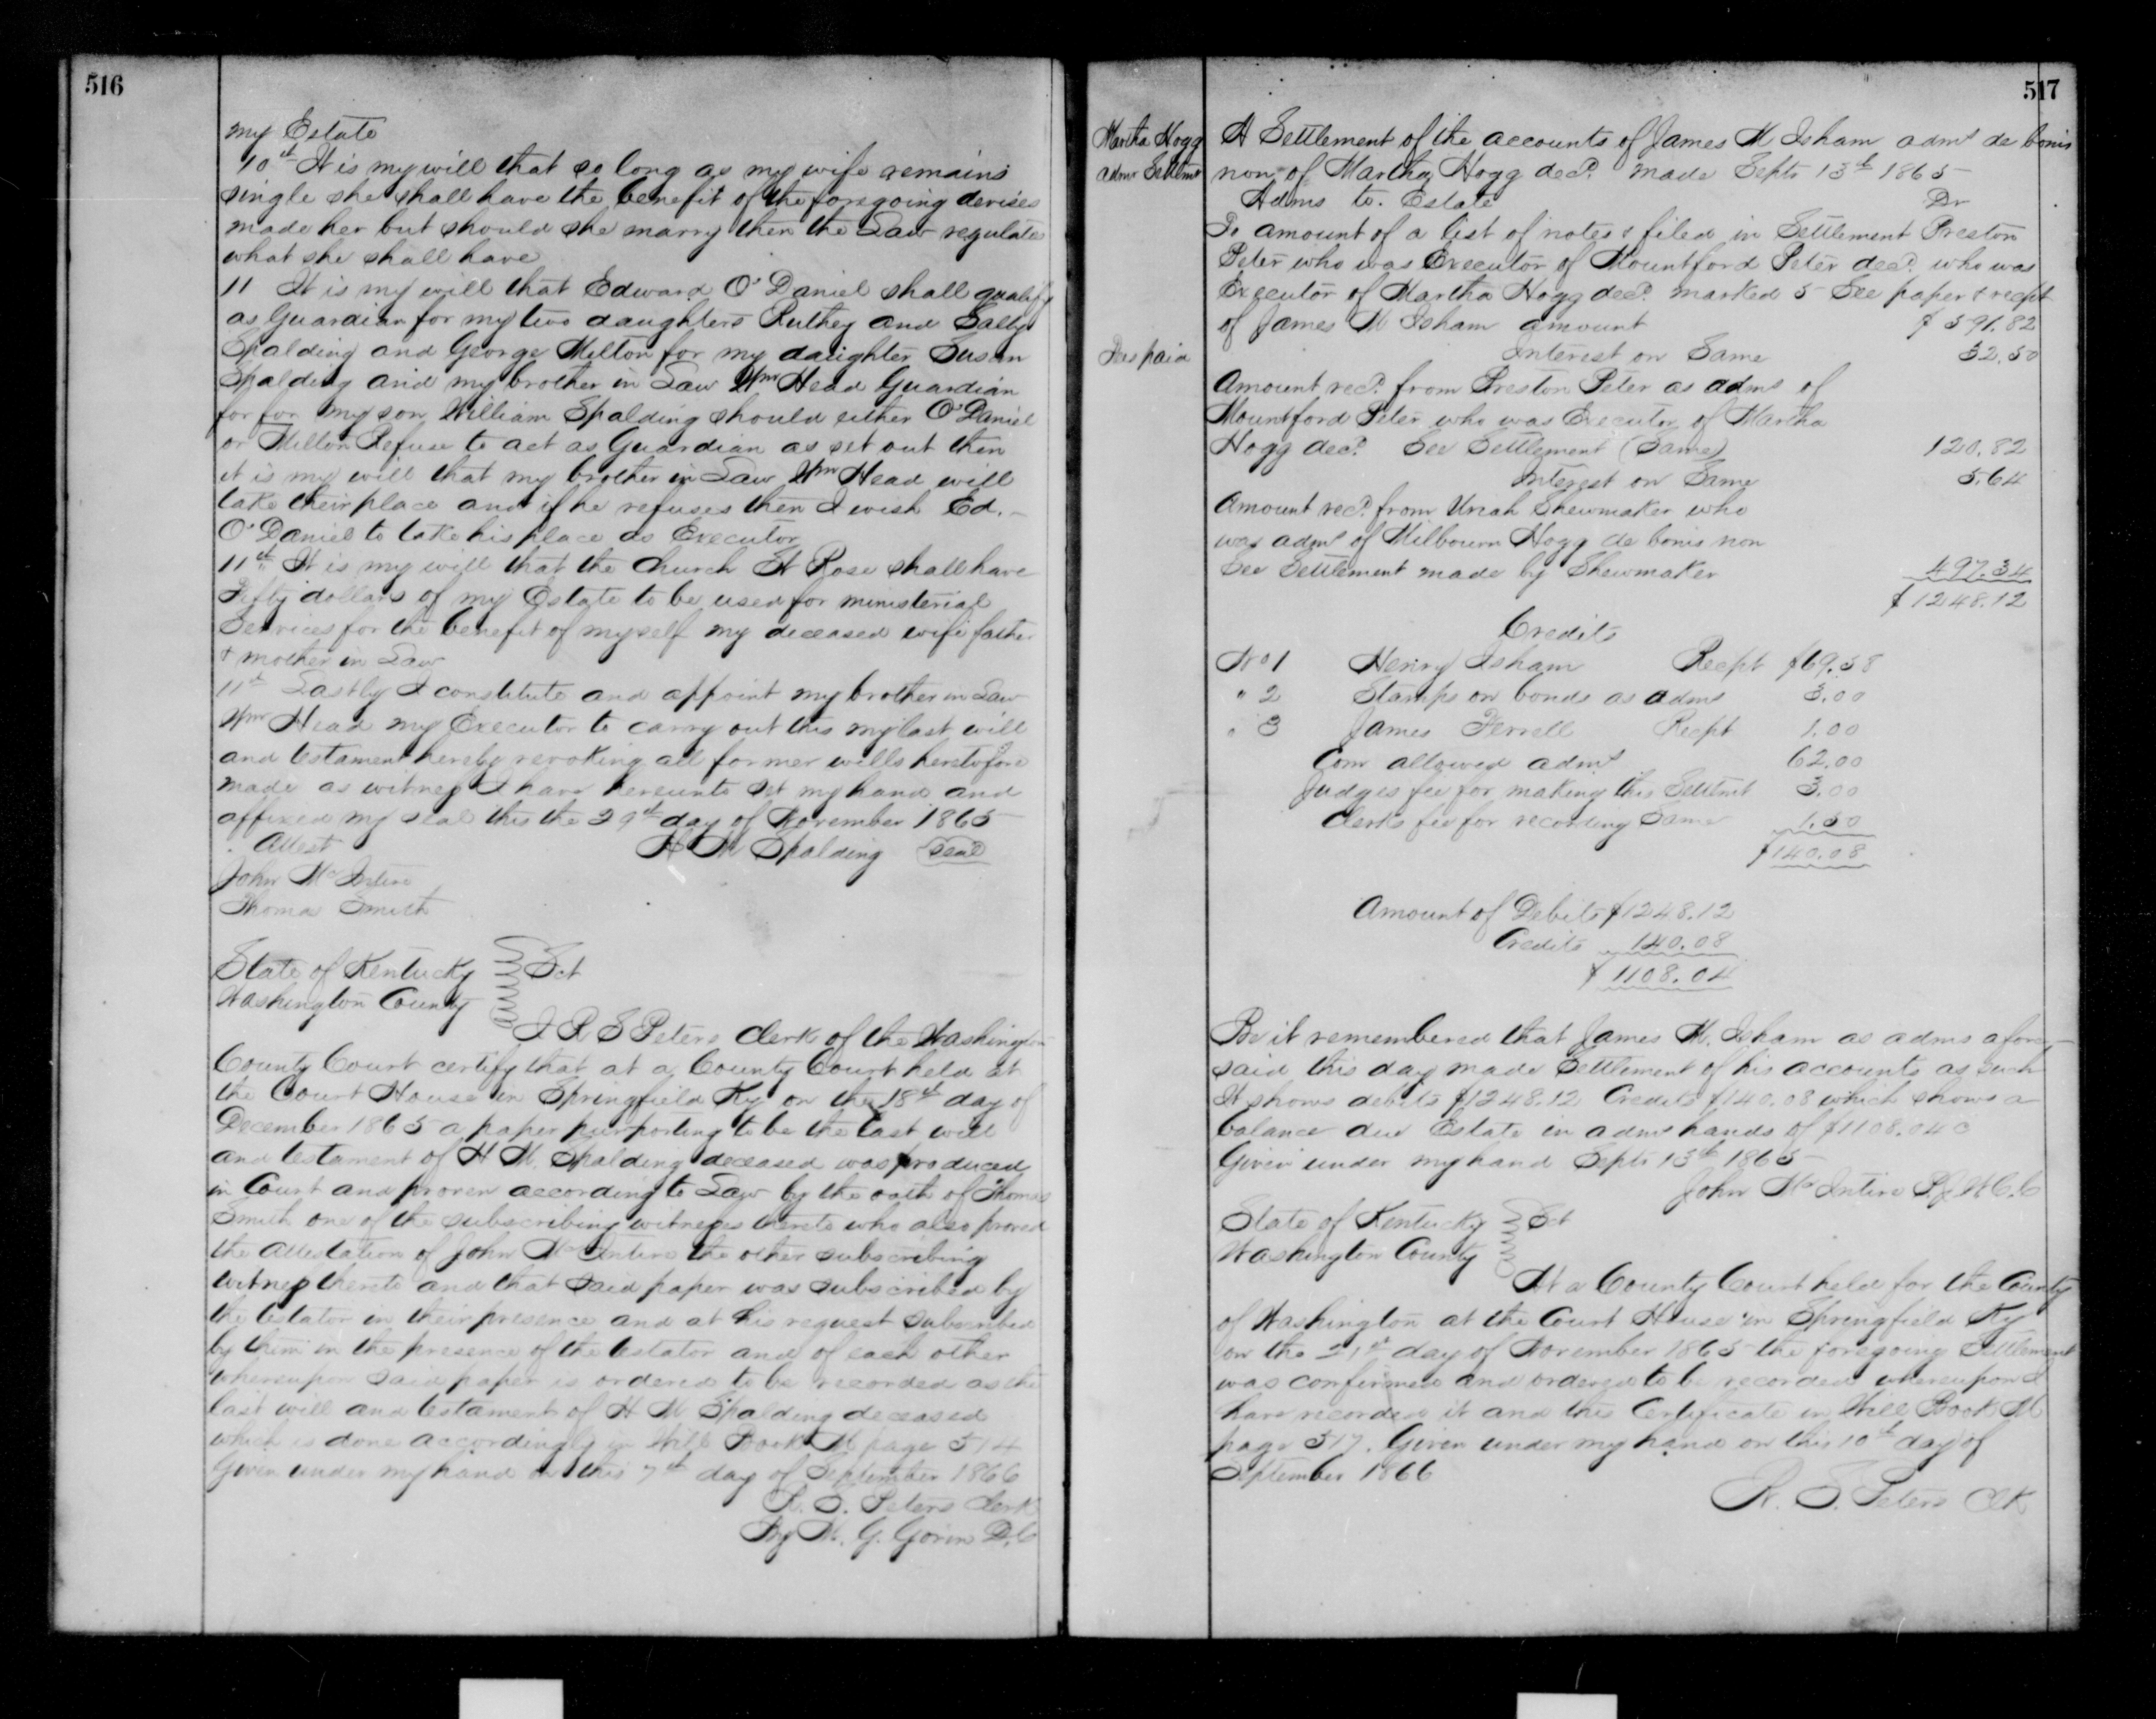 516
my Estate
10th It is my will that so long as my wife remains
single she shall have the benefit of the foregoing devises
made her but should she marry then the Law regulate
what she shall have
11 It is my will that Edward O'Daniel shall qualify
as Guardian for my two daughters Ruthey and Sally
Spalding and George Milton for my daughter Susan
Spalding and my brother in Law Wm Head Guardian
for for my son William Spalding should either O'Daniel
or Milton Refuse to act as Guardian as set out then
it is my will that my brother in Law Wm Head will
take their place and if he refuses then I wish Ed.
O'Daniel to take his place as Executor
11th It is my will that the Church St Rose shall have
Fifty dollars of my Estate to be used for ministerial
Services for the benefit of myself my deceased wife father
& mother in Law
11th Lastly I constitute and appoint my brother in Law
Wm Head my Executor to carry out this my last will
and testament hereby revoking all former wills heretofore
made as witness I have hereunto set my hand and
affixed my seal this the 29th day of November 1865
Attest H M Spalding Seal
John McIntire
Thomas Smith
State of Kentucky Sct
Washington County
I R S Peters Clerk of the Washington
County Court certify that at a County Court held at
the Court House in Springfield Ky on the 18th day of
December 1865 a paper purporting to be the last will
and testament of H M. Spalding deceased was produced
in Court and proven according to Law by the oath of Thomas
Smith one of the subscribing witnesses thereto who also proved
the attestation of John McIntire the other subscribing
witness thereto and that said paper was subscribed by
the testator in their presence and at his request subscribed
by them in the presence of the testator and of each other
whereupon said paper is ordered to be recorded as the
last will and testament of H M Spalding deceased
which is done accordingly in Will Book M page 514
Given under my hand on this 7th day of September 1866
R. S. Peters Clerk
By M. G. Gorin D.C
517
Martha Hogg
admr Settmt
A Settlement of the accounts of James M Isham admr de bonis
non of Martha Hogg decd. made Septr 13th 1865
Admr to. Estate Dr
To amount of a list of notes & filed in Settlement Preston
Peter who was Executor of Mountford Peter decd. who was
Executor of Martha Hogg decd. marked 5 See paper & recpt
of James M Isham amount $591.82
Interest on Same 32.50
Amount recd. from Preston Peter as admr of
Mountford Peter who was Executor of Martha
Hogg decd. See Settlement (Same) 120.82
Interest on Same 5.64
Amount recd. from Uriah Shewmaker who
was admr of Milbourn Hogg de bonis non
See Settlement made by Shewmaker 497.34
$1248.12
Credits
No 1 Henry Isham Recpt $69.58
" 2 Stamps on bonds as admr 3.00
" 3 James Ferrell Recpt 1.00
Com allowed admr 62.00
Judges fee for making this Settmt 3.00
Clerks fee for recording Same 1.50
$140.08
Amount of Debits $1248.12
Credits 140.08
$1108.04
Be it remembered that James M. Isham as admr afore
said this day made Settlement of his accounts as such
It shows debits $1248.12 Credits $140.08 which shows a
balance due Estate in admr hands of $1108.04 c
Given under my hand Septr 13th 1865
John McIntire P.J.W.C.C
State of Kentucky Sct
Washington County
At a County Court held for the County
of Washington at the Court House in Springfield Ky
on the 21st day of November 1865 the foregoing Settlement
was confirmed and ordered to be recorded whereupon I
have recorded it and this Certificate in Will Book M
page 517. Given under my hand on this 10th day of
September 1866
R. S. Peters Clk